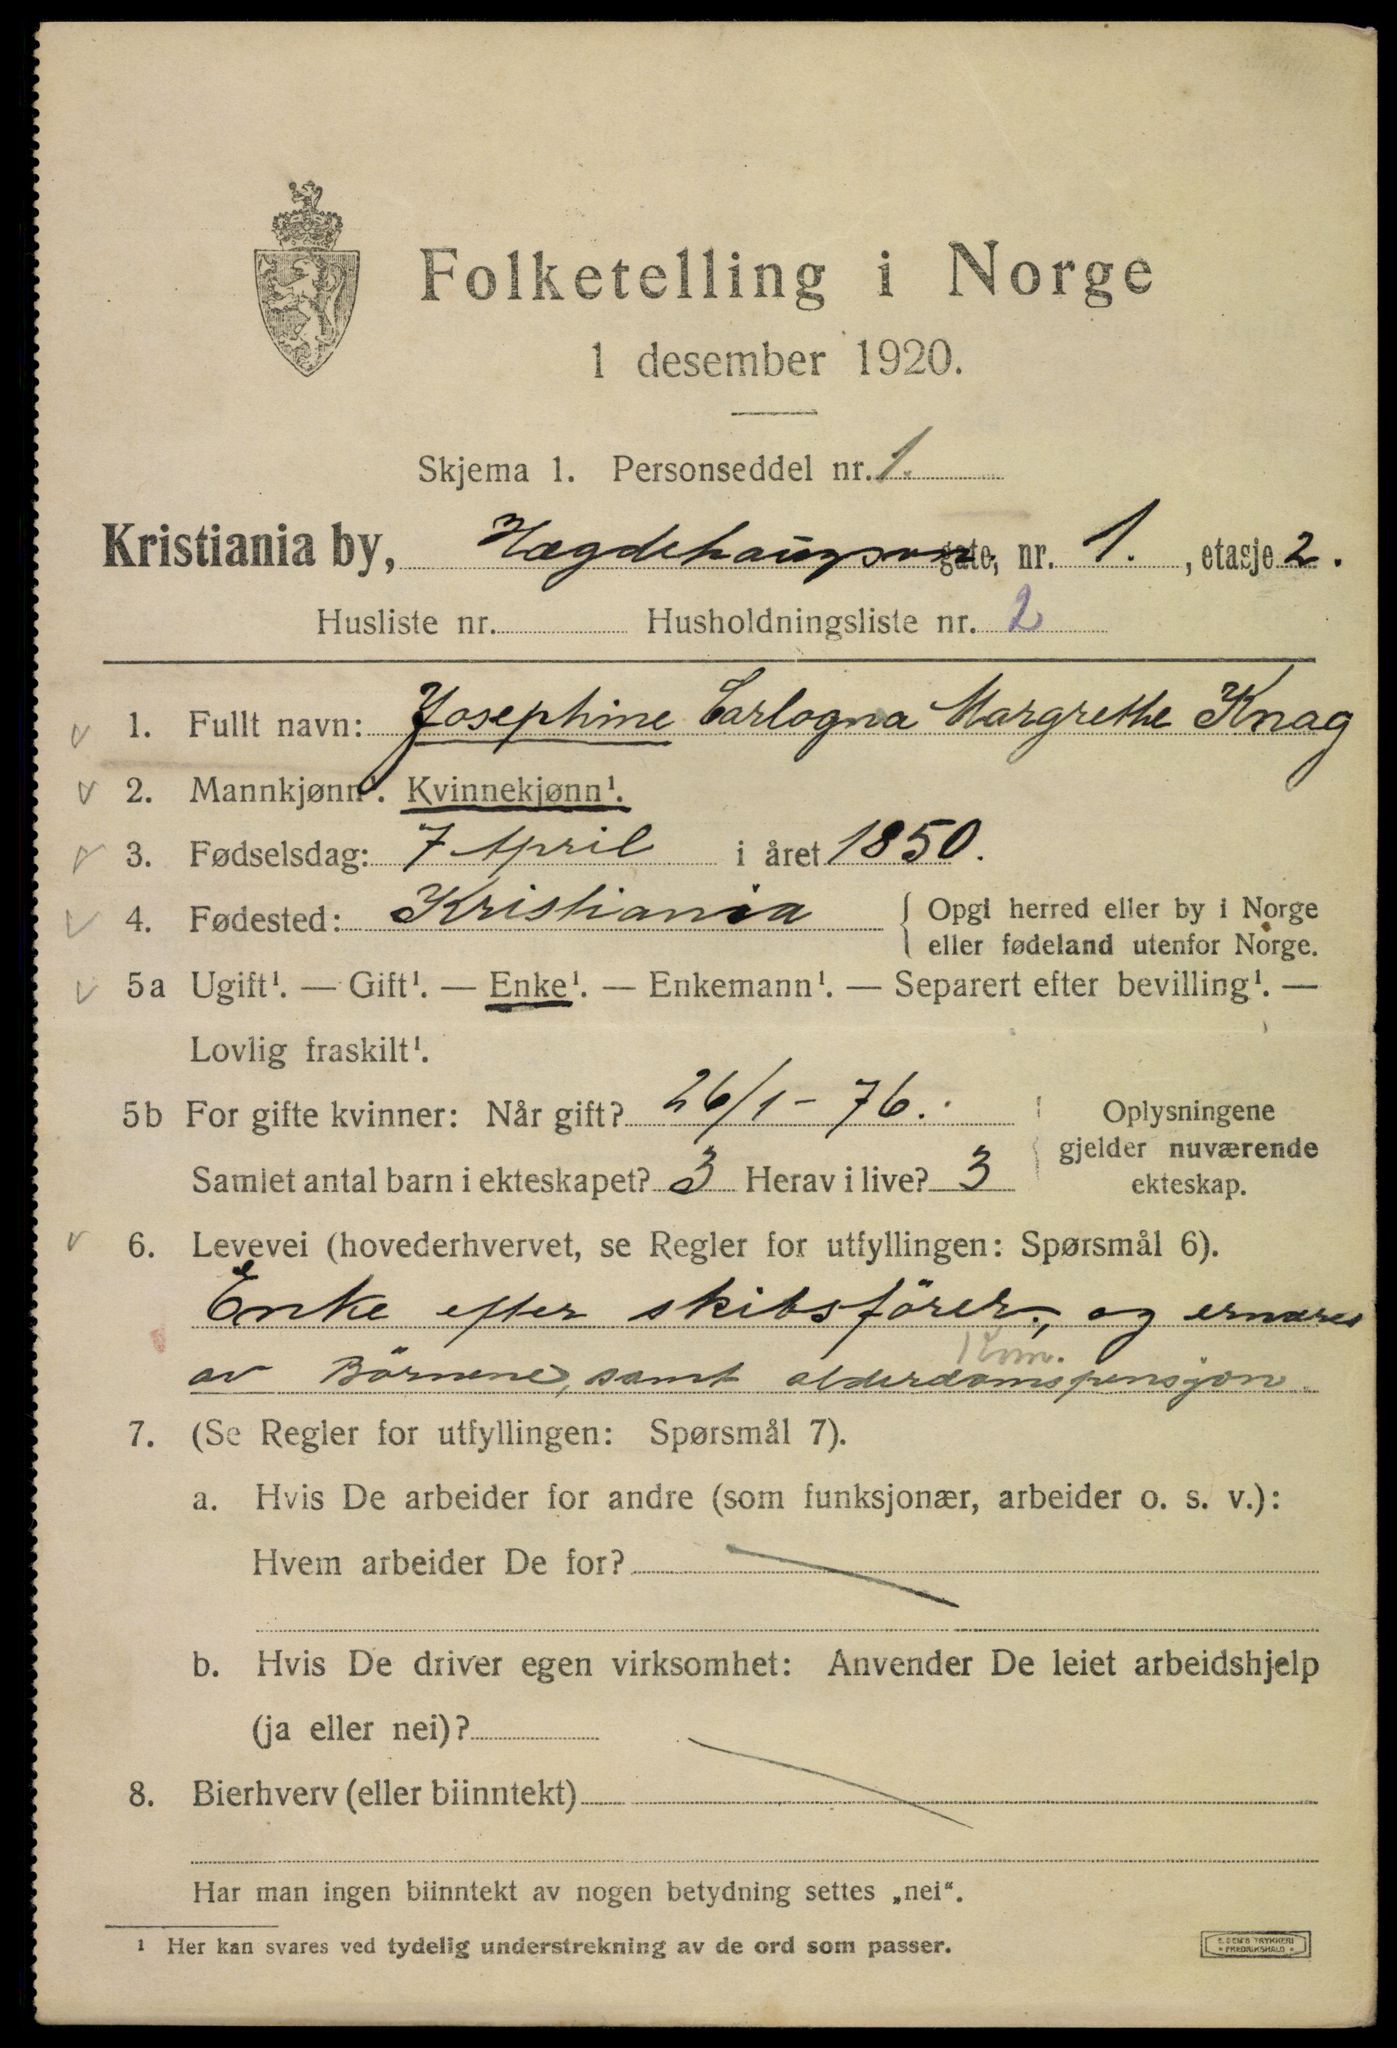 Folketelling i Norge
1 desember 1920.
Skjema 1. Personseddel nr. 1.
Kristiania by, Hægdehaugsvn gate, nr. 1. , etasje 2.
Husliste nr. Husholdningsliste nr. 2
1. Fullt navn: Josephine Carlogna Margrethe Knag
2. Mannkjønn¹. Kvinnekjønn¹.
3. Fødselsdag: 7 April i året 1850.
4. Fødested: Kristiania { Opgi herred eller by i Norge
eller fødeland utenfor Norge.
5a Ugift¹. — Gift¹. — Enke¹. — Enkemann¹. — Separert efter bevilling¹. —
Lovlig fraskilt¹.
5b For gifte kvinner: Når gift? 26/1-76. Oplysningene
gjelder nuværende
Samlet antal barn i ekteskapet? 3 Herav i live? 3 ekteskap.
6. Levevei (hovederhvervet, se Regler for utfyllingen: Spørsmål 6).
Enke efter skibsförer, og ernæres
Kom.
av Börnene, samt alderdomspensjon.
7. (Se Regler for utfyllingen: Spørsmål 7).
a. Hvis De arbeider for andre (som funksjonær, arbeider o. s. v.):
Hvem arbeider De for?
b. Hvis De driver egen virksomhet: Anvender De leiet arbeidshjelp
(ja eller nei)?
8. Bierhverv (eller biinntekt)
Har man ingen biinntekt av nogen betydning settes „nei“.
¹ Her kan svares ved tydelig understrekning av de ord som passer.
E. DEM'S TRYKKERI
• FREDRIKSHALD •